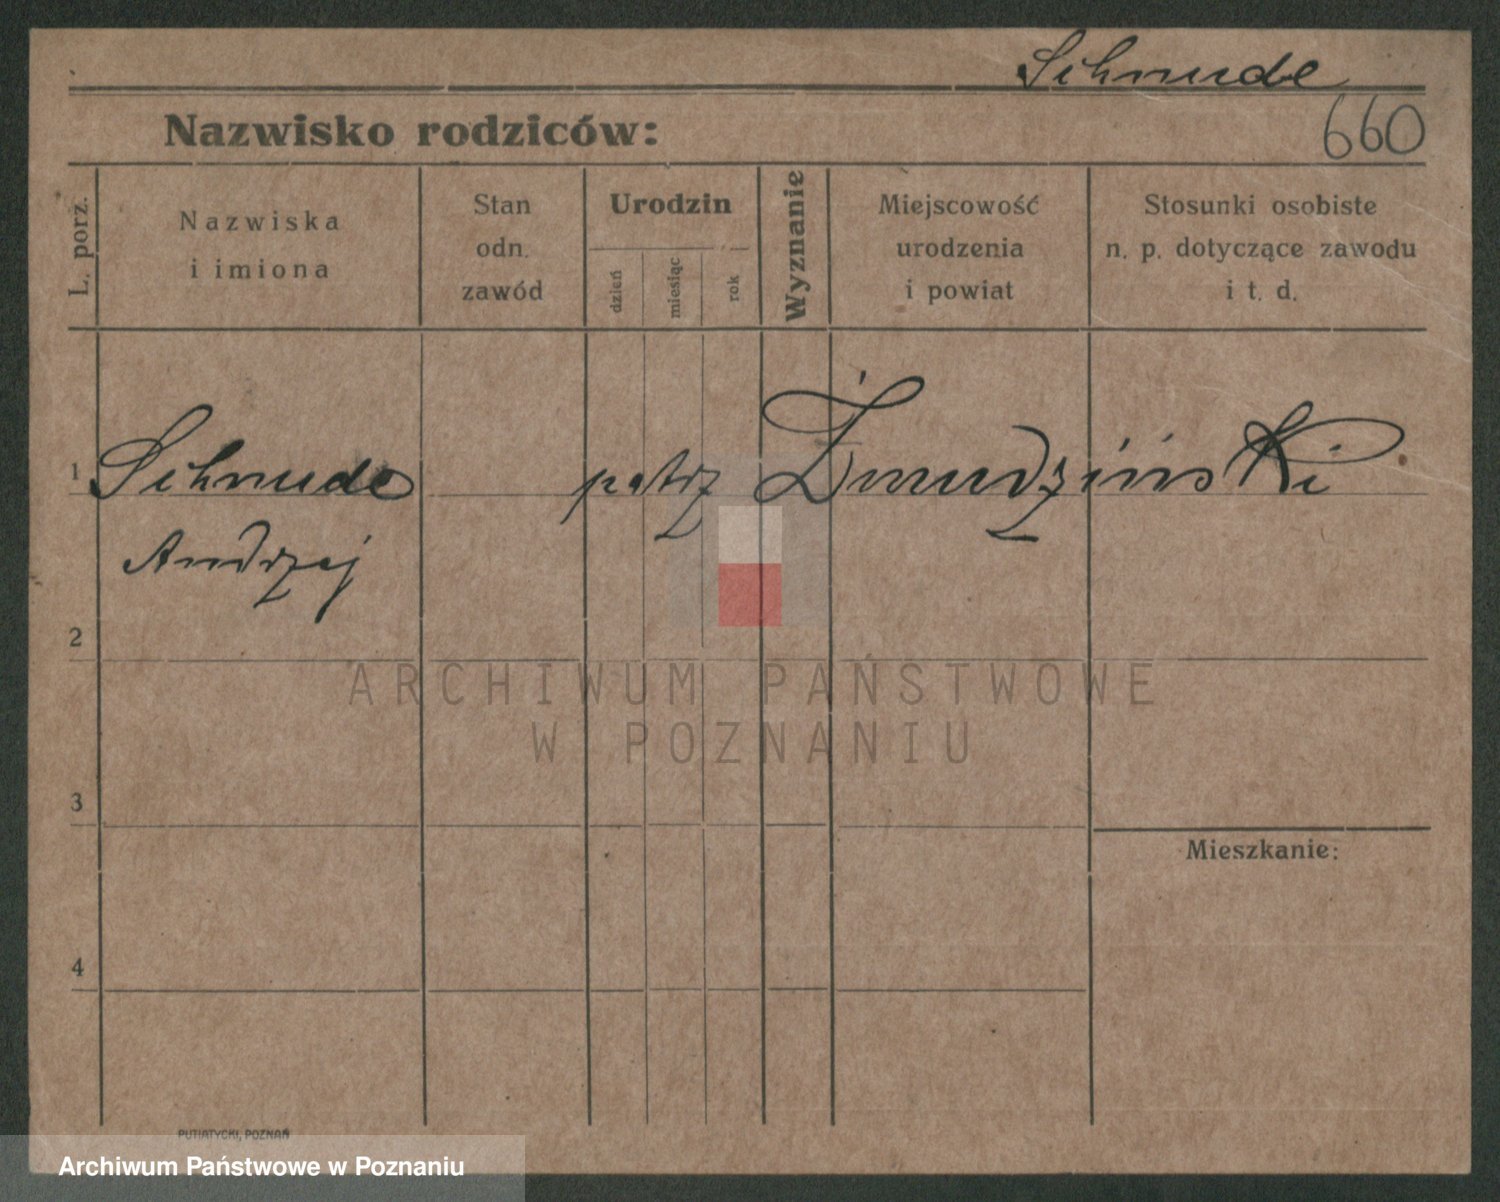 Schmude
660
Nazwisko rodziców:
L. porz.
Nazwiska
i imiona
Stan
odn.
zawód
Urodzin
dzień
miesiąc
rok
Wyznanie
Miejscowość
urodzenia
i powiat
Stosunki osobiste
n. p. dotyczące zawodu
i t. d.
1
Schmude patrz Żmudziński
Andrzej
2
ARCHIWUM PAŃSTWOWE
W POZNANIU
3
Mieszkanie:
4
PUTIATYCKI, POZNAŃ
Archiwum Państwowe w Poznaniu